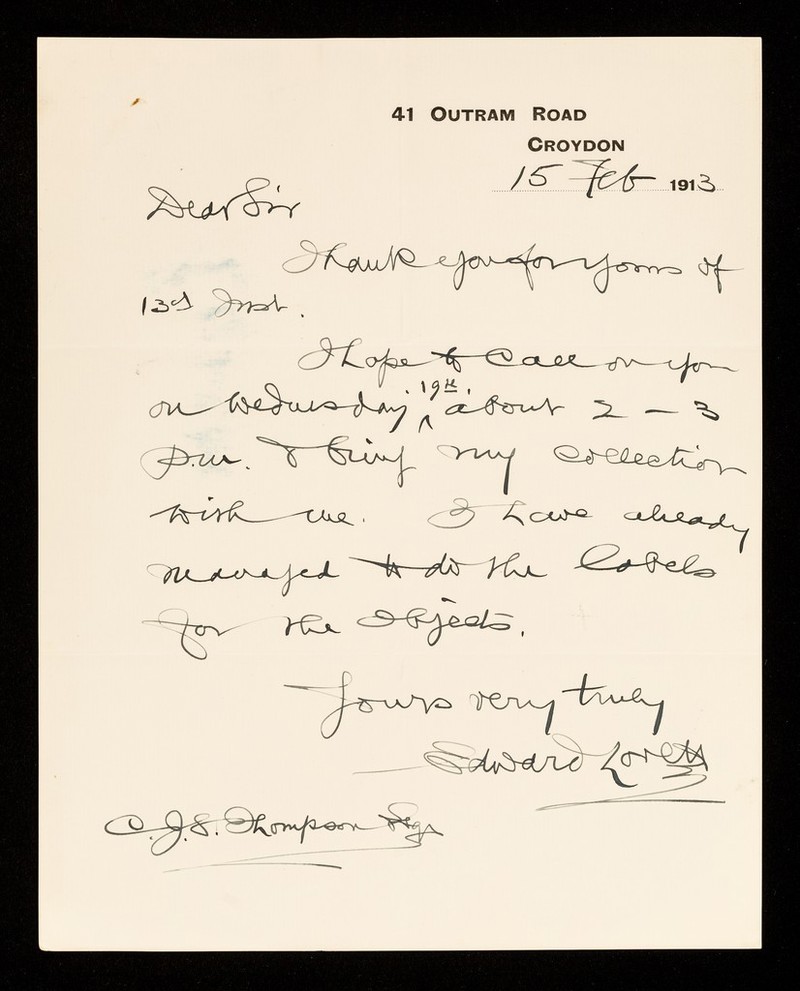 41 OUTRAM ROAD
CROYDON
15 Feb 1913
Dear Sir
Thank you for yours of
13th Inst.
I hope to call on you
on Wednesday 19th. about 2 - 3
p.m. & bring my collection
with me. I have already
managed to do the labels
for the objects.
Yours very truly
Edward Lovett
C. J. S. Thompson Esqr